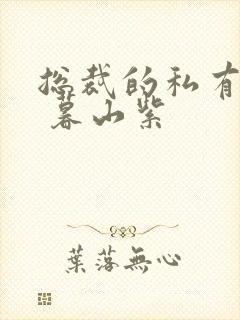 総裁的私有
暮山紫
葉落無心